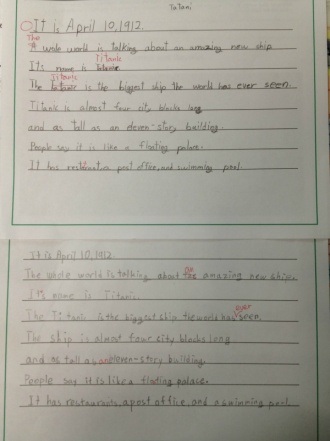 Tatani
It is April 10, 1912.
The
A wole world is talking about an amazing new ship
Titanic
Its name is Titanic.
Titanic
The Tatanic is the biggest ship the world has ever seen.
Titanic is almost four city blocks long
and as tall as an eleven-story building
People say it is like a floating palace.
It has restaurants, post office, and swimming pool.
It is April 10, 1912
The whole world is talking about the amazing new ship.
It's name is Titanic.
ever
The Titanic is the biggest ship the world has seen.
The ship is almost four city blocks long
and as tall as an eleven-story building.
People say it is like a floating palace.
It has restaurants, a post office, and a swimming pool.